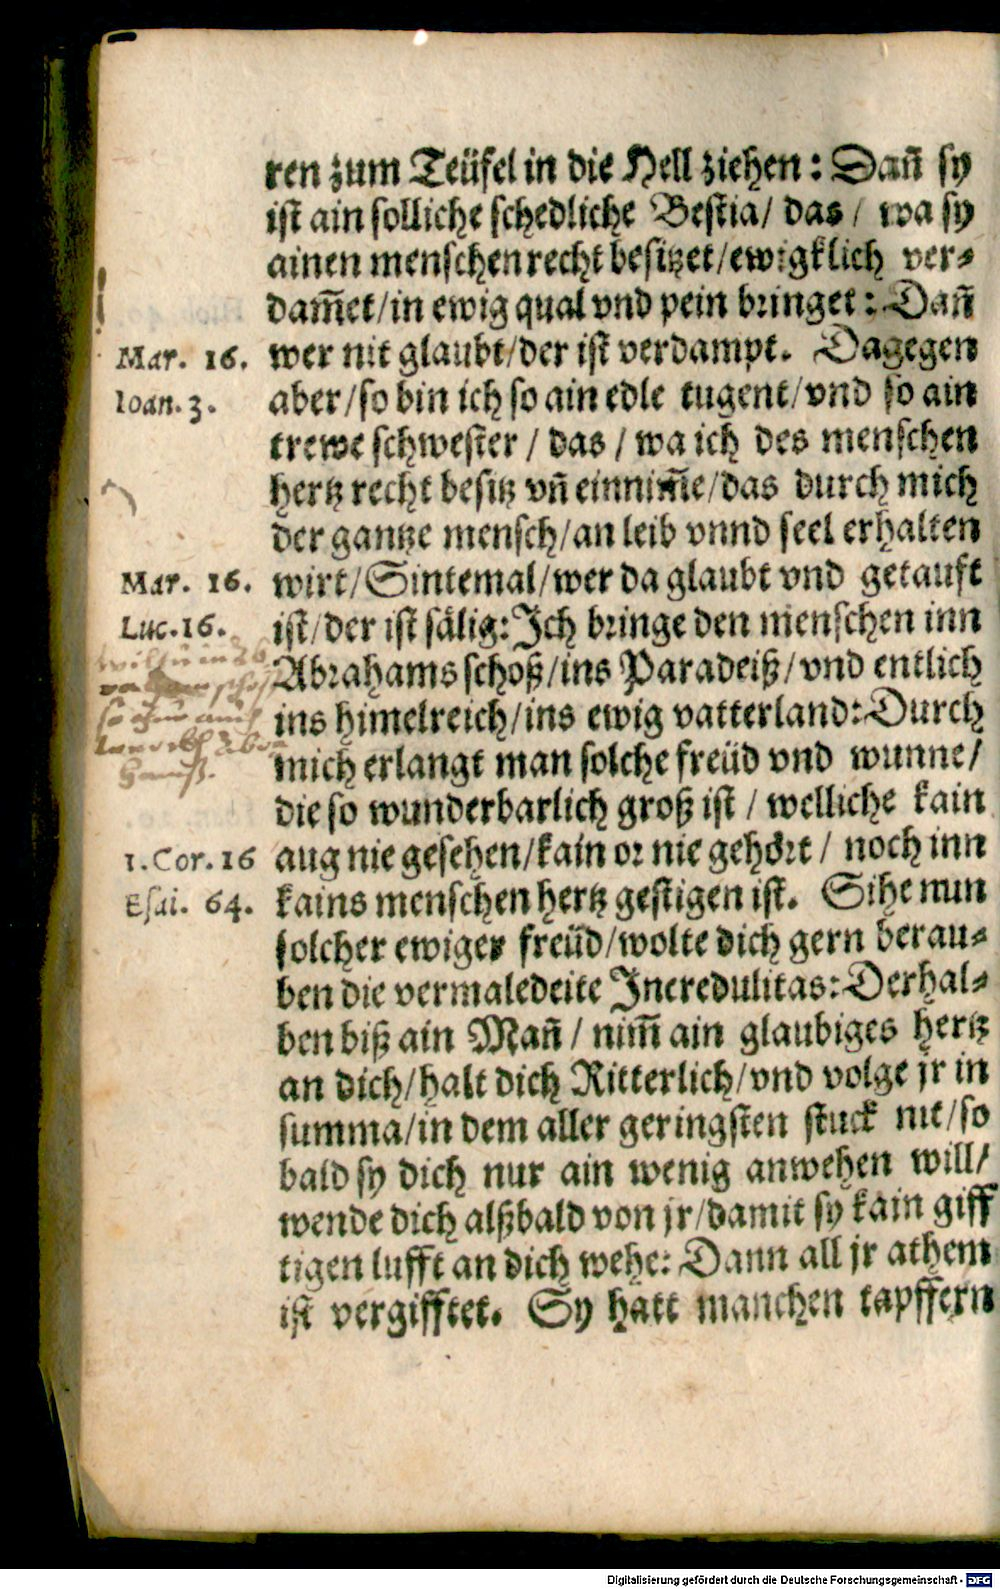 ren zum Teüfel in die Hell ziehen: Dañ sy
ist ain solliche schedliche Bestia/ das/ wa sy
ainen menschen recht besitzet/ewigklich ver⸗
dam̃et/in ewig qual vnd pein bringet: Dañ
Mar. 16. wer nit glaubt/der ist verdampt. Dagegen
Ioan. 3. aber/so bin ich so ain edle tugent/vnd so ain
trewe schwester / das / wa ich des menschen
hertz recht besitz vñ einnim̃e/das durch mich
der gantze mensch/an leib vnnd seel erhalten
Mar. 16. wirt/Sintemal/wer da glaubt vnd getauft
Luc. 16. ist/der ist sälig: Ich bringe den menschen inn
Abrahams schoß/ins Paradeiß/vnd entlich
ins himelreich/ins ewig vatterland: Durch
mich erlangt man solche freüd vnd wunne/
die so wunderbarlich groß ist / welliche kain
1. Cor. 16 aug nie gesehen/kain or nie gehört / noch inn
Esai. 64. kains menschen hertz gestigen ist. Sihe nun
solcher ewiger freüd/wolte dich gern berau⸗
ben die vermaledeite Incredulitas: Derhal⸗
ben biß ain Mañ / nim̃ ain glaubiges hertz
an dich/halt dich Ritterlich/vnd volge jr in
summa/in dem aller geringsten stuck nit/so
bald sy dich nur ain wenig anwehen will/
wende dich alßbald von jr/damit sy kain giff
tigen lufft an dich wehe: Dann all jr athem
ist vergifftet. Sy hatt manchen tapffern
Digitalisierung gefördert durch die Deutsche Forschungsgemeinschaft - DFG